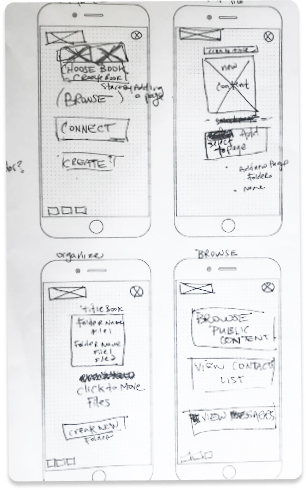 CHOOSE BOOK
CREATE BOOK
Start by Adding
a page
(BROWSE)
CONNECT
CREATE?
new
content
Add
select
to page
name
organizer
title Book
Folder Name
File 1
Folder Name
File 1
File 2
click to Move
Files
CREATE NEW
Folder
BROWSE
BROWSE
PUBLIC
CONTENT
VIEW CONTACTS
LIST
VIEW